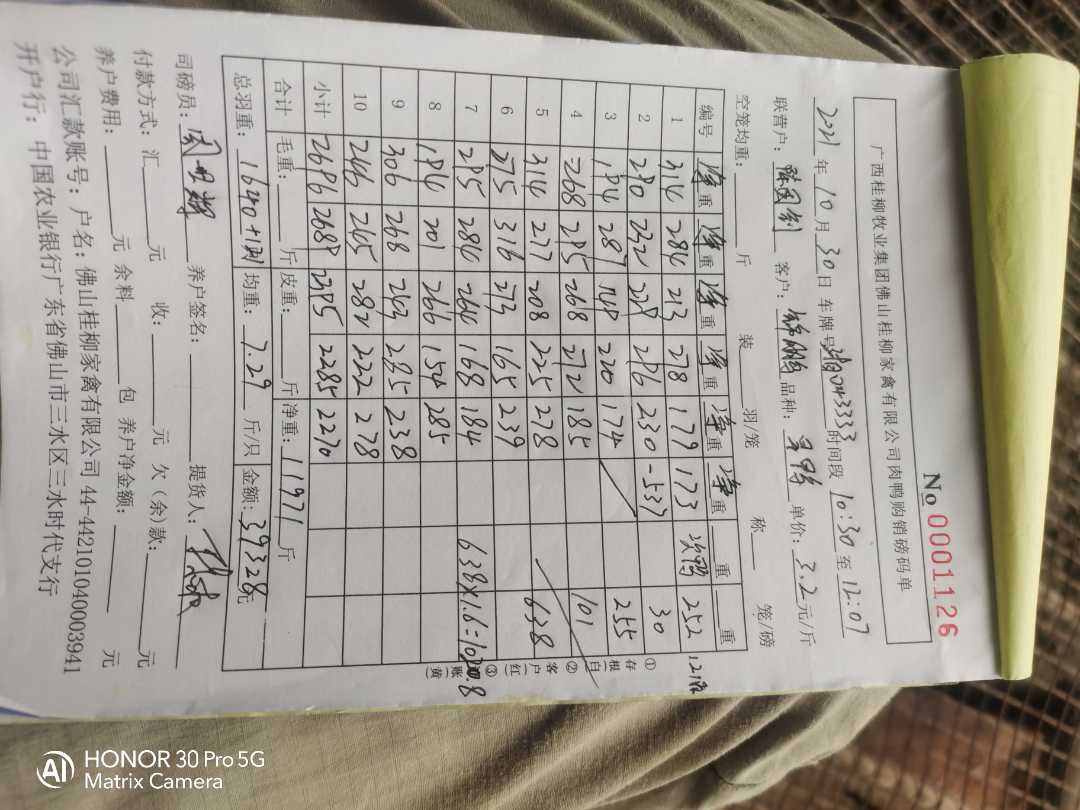 No 0001126
广西桂柳牧业集团佛山桂柳家禽有限公司肉鸭购销磅码单
2021年10月30日 车牌号 04333 时间段 10:30至12:07
联营户: 客户: 品种: 单价: 3.2元/斤
空笼均重: 斤 装 羽/笼 称 笼/磅
编号 净重 净重 净重 净重 净重 净重 重 重
1 314 284 213 278 179 173 次鸭 252 121只
2 280 222 278 286 230 -537 30
3 184 287 220 174 255
4 268 285 268 272 185 101
5 314 277 208 225 278 638
6 275 316 273 165 239
7 285 284 264 168 184 638×1.6=1020.8
8 184 201 266 154 285
9 306 268 243 285 238
10 246 265 282 222 278
小计 2686 2688 2285 2270
合计 毛重: 斤 皮重: 斤 净重: 11971斤
总羽重: 1640+ 均重: 7.29斤/只 金额: 39328元
司磅员: 养户签名: 提货人:
付款方式: 汇 元 收: 元 欠(余)款: 元
养户费用: 元 余料 包 养户净金额: 元
公司汇款账号: 户名: 佛山桂柳家禽有限公司 44-442101040003941
开户行: 中国农业银行广东省佛山市三水区三水时代支行
①存根(白) ②客户(红) ③账(黄)
HONOR 30 Pro 5G
Matrix Camera